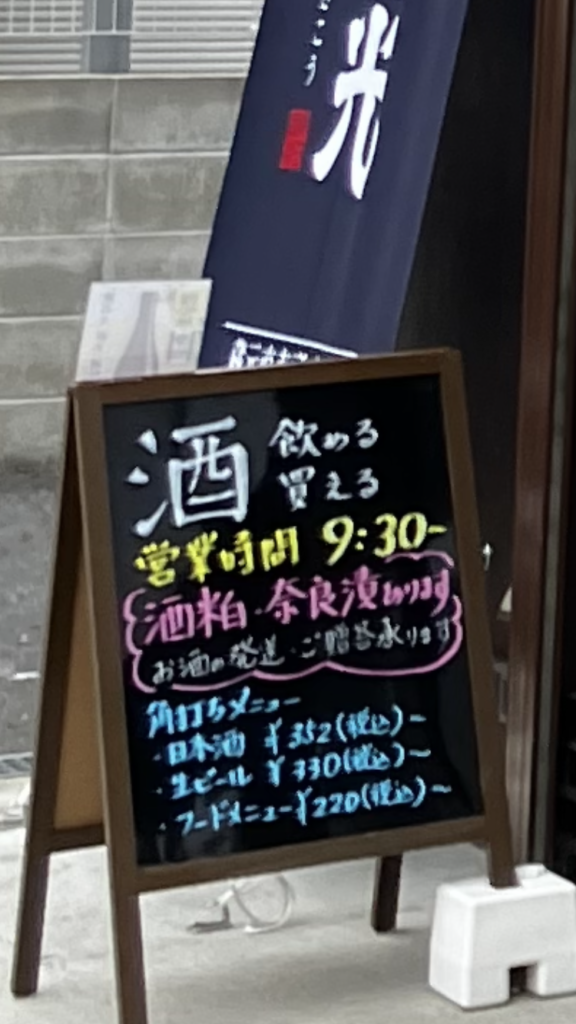 光
酒 飲める
買える
営業時間 9:30~
酒粕・奈良漬あります
お酒の発送・ご贈答承ります
角打ちメニュー
・日本酒 ¥352(税込)~
・生ビール ¥330(税込)~
・フードメニュー ¥220(税込)~